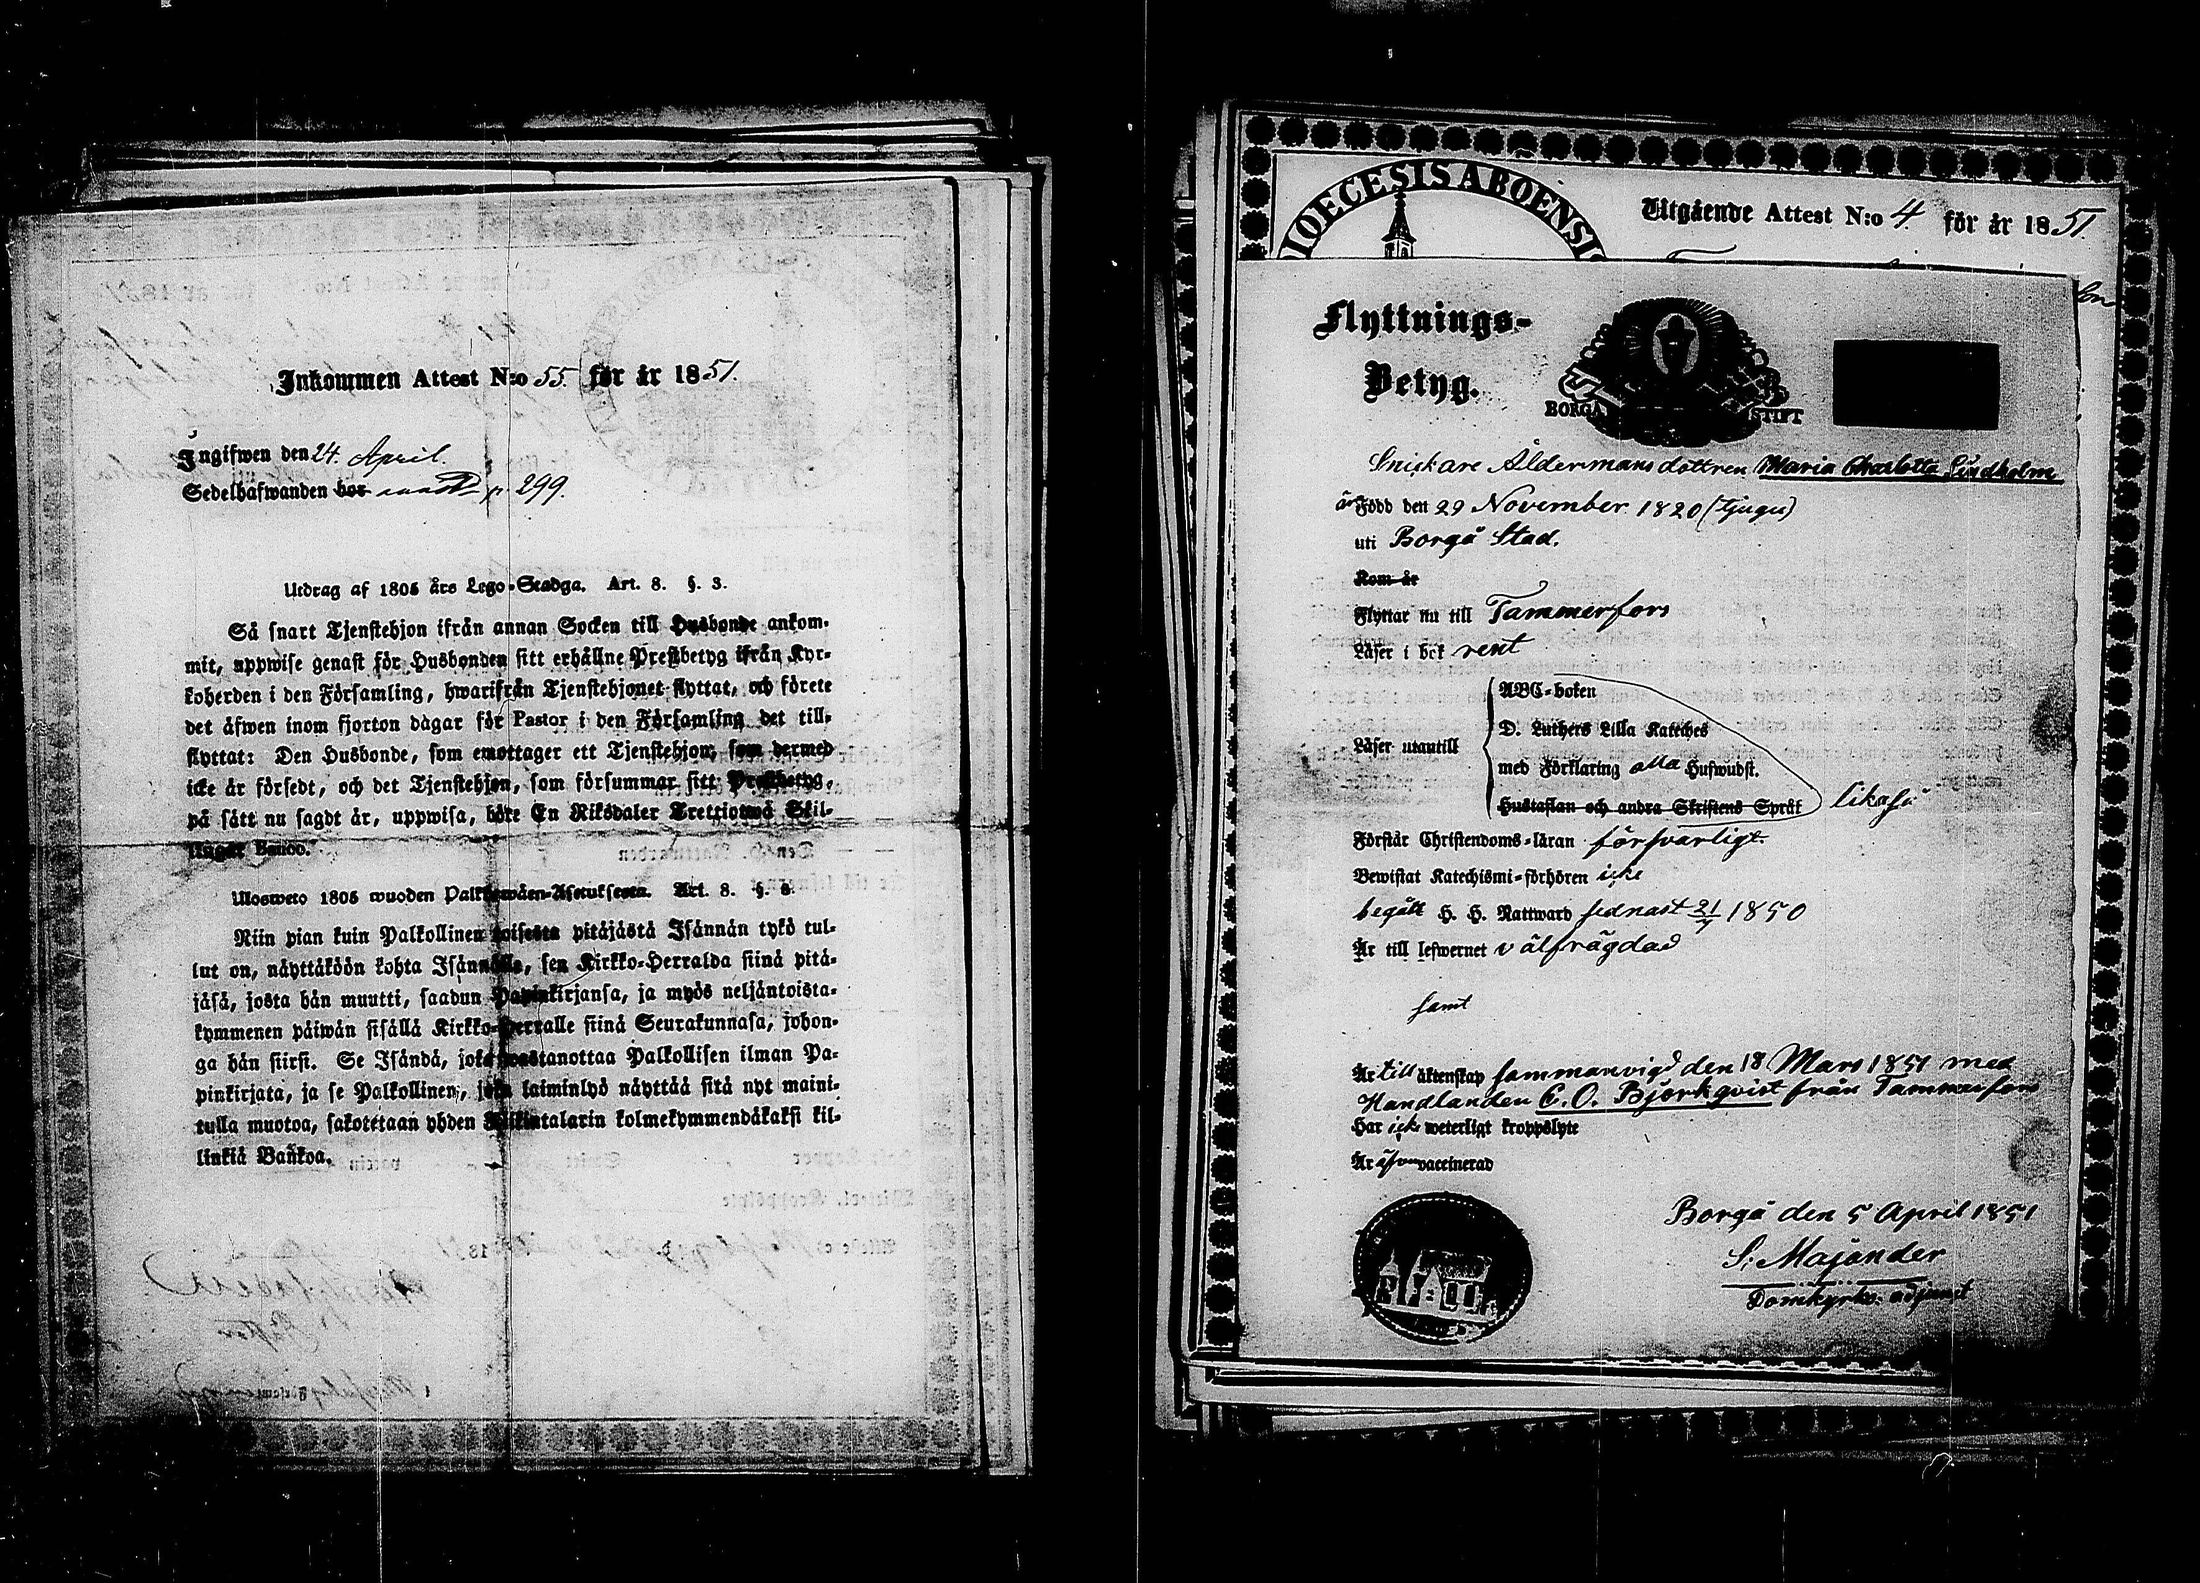 Inkommen Attest N:o 55. för år 1851.
Ingifwen den 24 April.
Sedelhafwanden bor p 299.
Utdrag af 1805 års Lego-Stadga. Art. 8. §. 3.
Så snart Tjenstehjon ifrån annan Socken till Husbonde ankom-
mit, uppwise genast för Husbonden sitt erhållne Prestbetyg ifrån Kyr-
koherden i den Församling, hwarifrån Tjenstehjonet flyttat, och förete
det äfwen inom fjorton dagar för Pastor i den Församling det till-
flyttat: Den Husbonde, som emottager ett Tjenstehjon, som dermed
icke är försedt, och det Tjenstehjon, som försummar sitt Prestbetyg,
på sätt nu sagdt är, uppwisa, böte En Riksdaler Trettiotwå Skil-
lingar Banco.
Ulosweto 1805 wuoden Palkkawäen-Asetuksesta. Art. 8. §. 3.
Niin pian kuin Palkollinen toisesta pitäjästä Isännän tykö tul-
lut on, näyttäköön kohta Isännälle, sen Kirkko-Herralda siinä pitä-
jäsä, josta hän muutti, saadun Papinkirjansa, ja myös neljäntoista-
kymmenen päiwän sisällä Kirkko-Herralle siinä Seurakunnasa, johon-
ga hän siirsi. Se Isändä, joka wastanottaa Palkollisen ilman Pa-
pinkirjata, ja se Palkollinen, joka laiminlyö näyttää sitä nyt maini-
tulla muotoa, sakotetaan yhden Riikintalarin kolmekymmendäkaksi kil-
linkiä Bankoa.
DIOECESIS ABOENSIS
Utgående Attest N:o 4. för år 1851.
Flyttnings-
Betyg.
BORGÅ STIFT
Snickare Åldermans dottren Maria Charlotta Lindholm
är Född den 29 November 1820 (tjugu)
uti Borgå Stad.
Kom år
Flyttar nu till Tammerfors
Läser i bok rent
Läser utantill
ABC-boken
D. Luthers Lilla Kateches
med Förklaring alla Hufwudst.
Hustaflan och andra Skriftens Språk likaså
Förstår Christendoms-läran försvarligt.
Bewistat Katechismi-förhören icke
begått H. H. Nattward sednast 21/7 1850
Är till lefwernet välfrägdad
samt
Är till äktenskap sammanvigd den 18 Mars 1851 med
Handlanden C. O. Björkqvist från Tammerfors
Har icke weterligt kroppslyte
Är äfven vaccinerad
Borgå den 5 April 1851
S: Majander
Domkyrko: adjunct